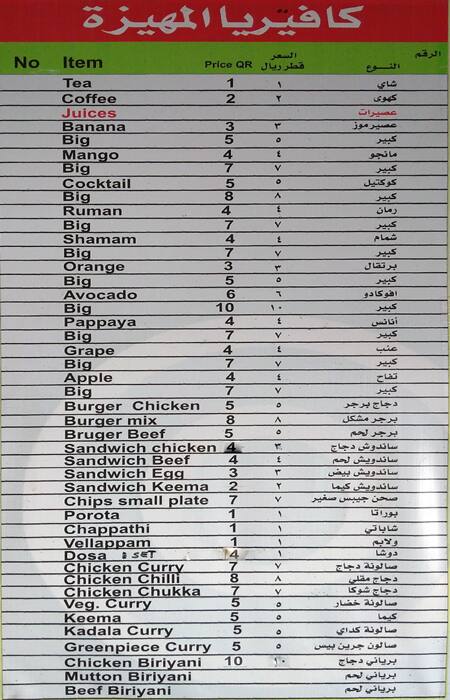 كافيتريا المهيزة
No Item Price QR السعر قطر ريال النوع الرقم
Tea 1 ١ شاي
Coffee 2 ٢ كهوى
Juices عصيرات
Banana 3 ٣ عصير موز
Big 5 ٥ كبير
Mango 4 ٤ مانجو
Big 7 ٧ كبير
Cocktail 5 ٥ كوكتيل
Big 8 ٨ كبير
Ruman 4 ٤ رمان
Big 7 ٧ كبير
Shamam 4 ٤ شمام
Big 7 ٧ كبير
Orange 3 ٣ برتقال
Big 5 ٥ كبير
Avocado 6 ٦ افوكادو
Big 10 ١٠ كبير
Pappaya 4 ٤ أناناس
Big 7 ٧ كبير
Grape 4 ٤ عنب
Big 7 ٧ كبير
Apple 4 ٤ تفاح
Big 7 ٧ كبير
Burger Chicken 5 ٥ دجاج برجر
Burger mix 8 ٨ برجر مشكل
Bruger Beef 5 ٥ برجر لحم
Sandwich chicken 4 ٣ ساندوش دجاج
Sandwich Beef 4 ٤ ساندويش لحم
Sandwich Egg 3 ٣ ساندويش بيض
Sandwich Keema 2 ٢ ساندويش كيما
Chips small plate 7 ٧ صحن جيبس صغير
Porota 1 ١ بوراتا
Chappathi 1 ١ شاباتي
Vellappam 1 ١ ولابم
Dosa 2 SET 4 ١ دوشا
Chicken Curry 7 ٧ صالونة دجاج
Chicken Chilli 8 ٨ دجاج مقلي
Chicken Chukka 7 ٧ دجاج شوكا
Veg. Curry 5 ٥ صالونة خضار
Keema 5 ٥ كيما
Kadala Curry 5 ٥ صالونة كداي
Greenpiece Curry 5 ٥ صالون جرين بيس
Chicken Biriyani 10 ١٠ برياني دجاج
Mutton Biriyani برياني لحم
Beef Biriyani برياني لحم